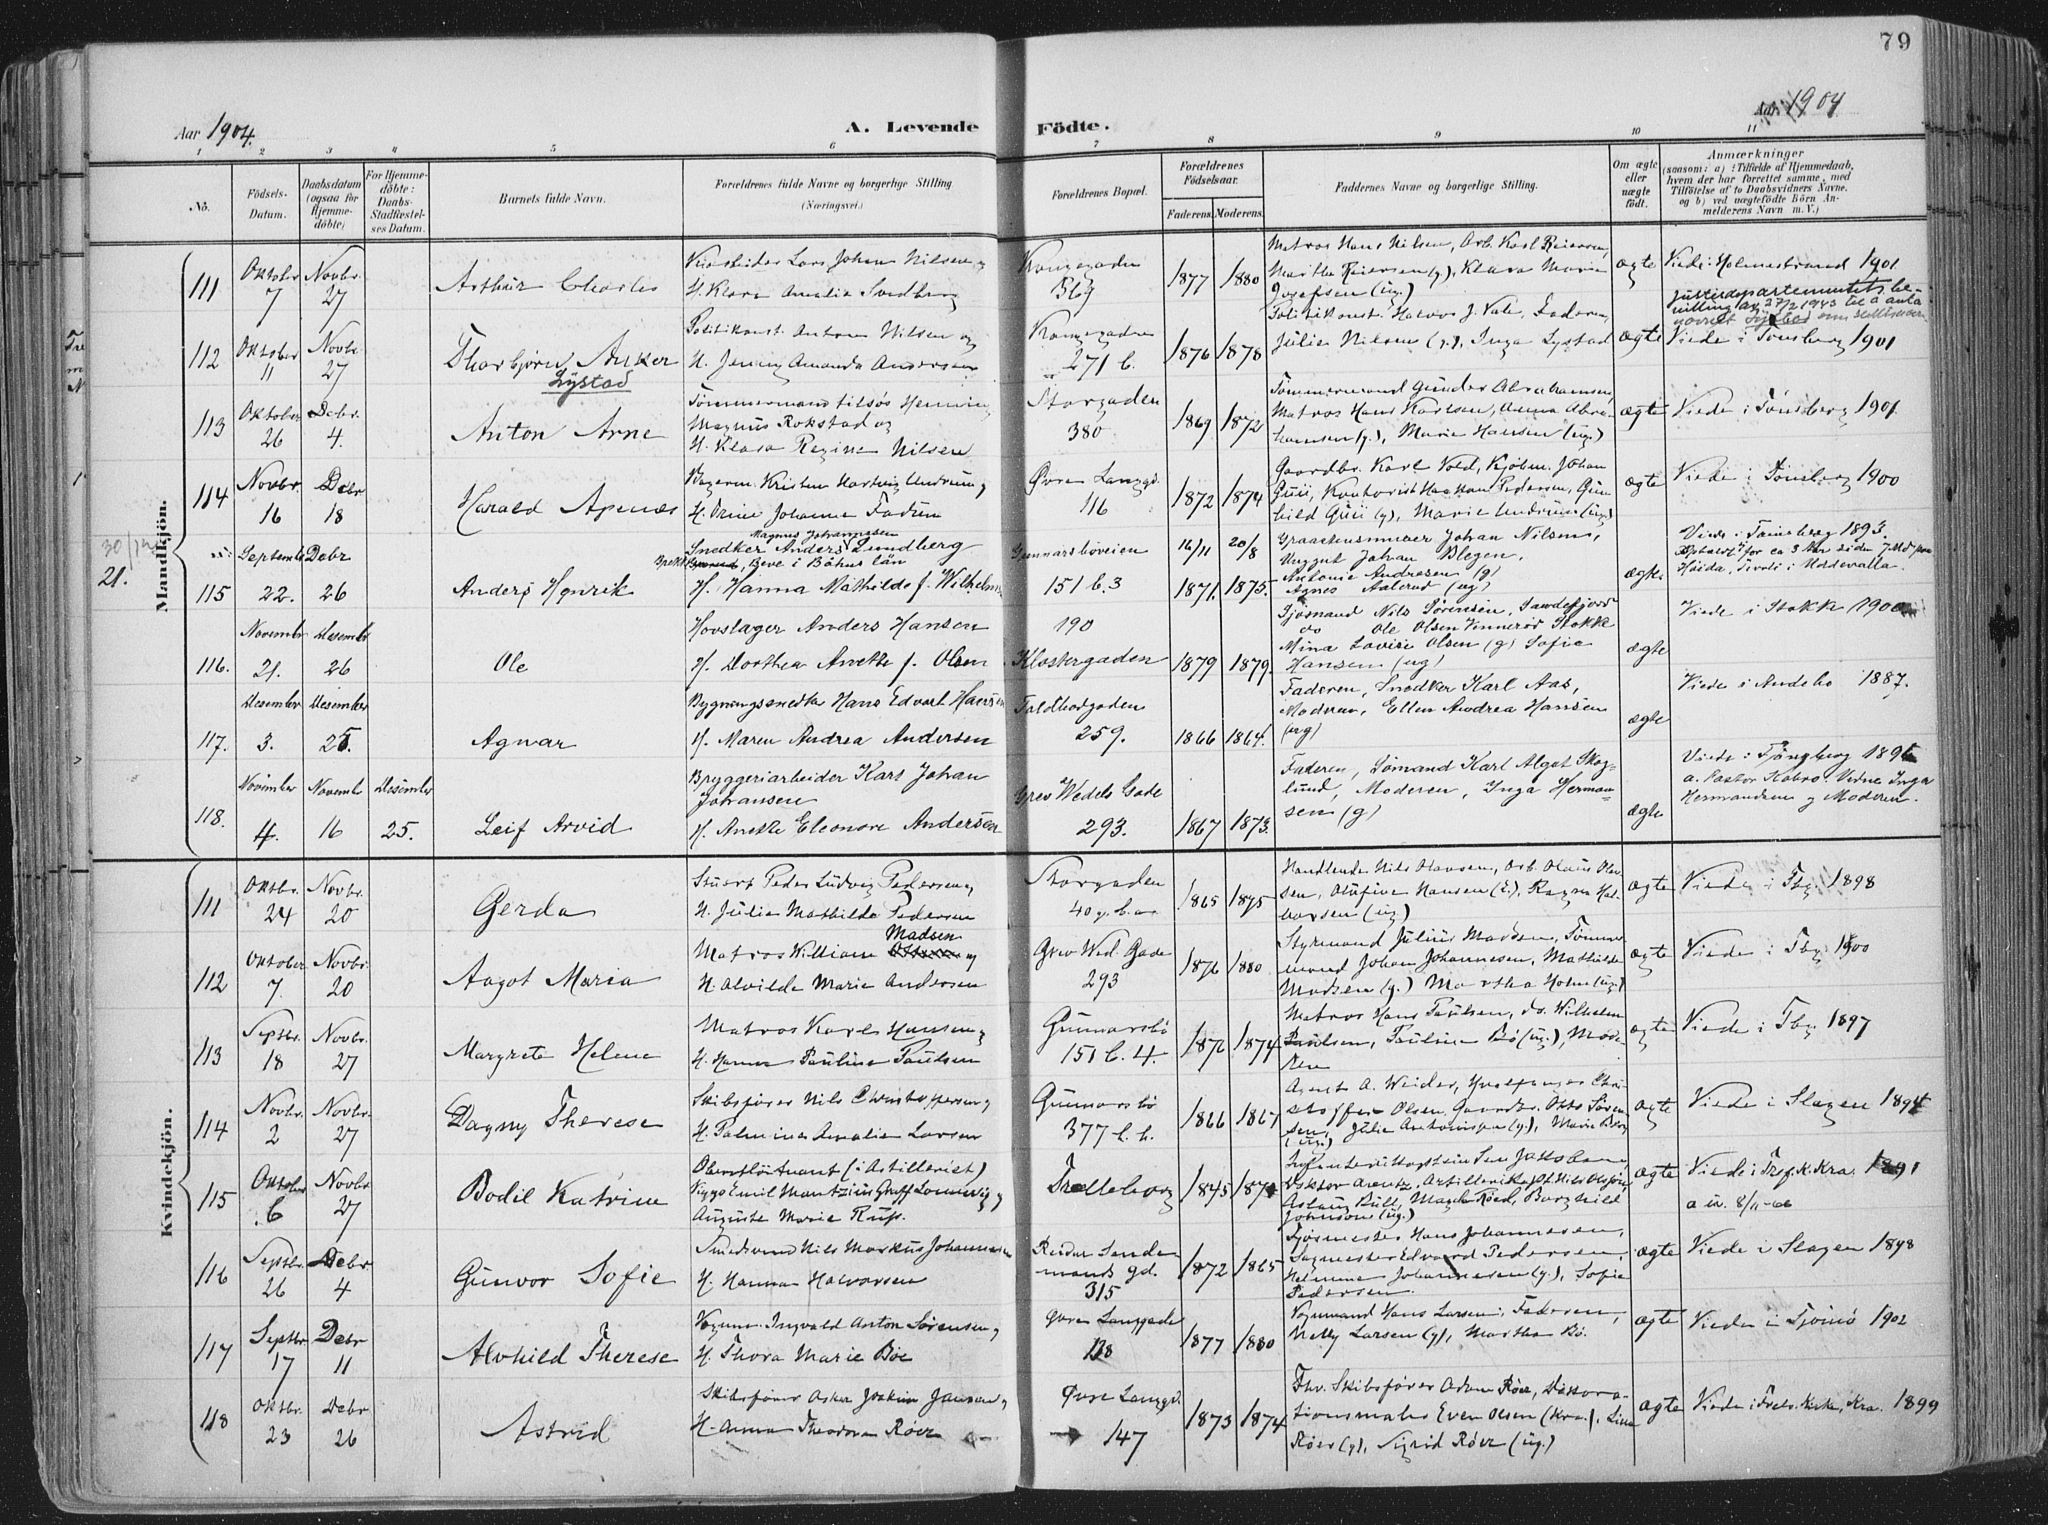 79
Aar 1904.
A. Levende Födte.
Aar 1904
1 2 3 4 5 6 7 8 9 10 11
No.
Födsels-Datum.
Daabsdatum (ogsaa for Hjemme-döbte)
For Hjemme-döbte: Daabs-Stadfæstel-ses Datum.
Barnets fulde Navn.
Forældrenes fulde Navne og borgerlige Stilling (Næringsvei.)
Forældrenes Bopæl.
Forældrenes Födselsaar.
Faderens. Moderens.
Faddernes Navne og borgerlige Stilling.
Om ægte eller uægte födt.
Anmærkninger
(saasom: a) i Tilfælde af Hjemmedaab, hvem der har forrettet samme, med Tilföielse af to Daabsvidners Navne. og b) ved uægtefödte Börn Anmelderens Navn m. V.)
Mandkjön.
111 Oktobr 7 Novbr. 27
Arthur Charles
Lars Johan Nilsen og
H. Klara Amalie Svedberg
Kongegaden
367
1877 1880
Matros Hans Nilsen, Arb. Karl Reiersen,
Marthe Reiersen (g), Klara Marie
Josefsen (ug.)
ægte
Viede i Holmestrand 1901
112 Oktober 11 Novbr. 27
Thorbjørn Anker
Lystad
Politikonst. Anton Nilsen og
H. Jenny Amanda Andersen
Kongegaden
271 b.
1876 1878
Politikonst. Halvor J. Vale, Faderen,
Julie Nilsen (g.), Inga Lystad
ægte
Justisdepartementets be-
villing av 27/2 1943 til å anta
navnet Lystad som slektsnavn
Viede i Tønsberg 1901
113 Oktober 26 Debr. 4.
Anton Arne
Tømmermand tilsøs Henning
Magnus Rokstad og
H. Klara Regine Nilsen
Storgaden
380
1869 1872
Tømmermand Gunder Abrahamsen,
Matros Hans Karlsen, Anna Abra-
hamsen (g.), Marie Hansen (ug.)
ægte
Viede i Tønsberg 1901.
114 Novbr. 16 Debr 18
Harald Apenæs
Bagerm. Kristen Hartvig Undrum og
H. Trine Johanne Fadum
Øvre Langgd.
116
1872 1874
Gaardbr. Karl Vold, Kjøbm. Johan
Guii, Kontorist Haakon Pedersen, Gun-
hild Guii (g), Marie Undrum (ug.)
ægte
Viede i Tønsberg 1900
21.
115 Septembr 22. Debr 26
Anders Henrik
Magnus Johannesen
Snedker Anders Lundberg
Beve i Båhus län
H. Hanna Mathilde f. Wilhelms
Gunnarsbøveien
151 b. 3
16/11 1871. 20/8 1875.
Graastensmurer Johan Nilsen,
Unggut Johan Blegen,
Antonie Andresen (g)
Agnes Aalerud (ug)
ægte
Viede i Tønsberg 1893.
116. November 21. Desember 26
Ole
Hovslager Anders Hansen
H. Dorthea Anette f. Olsen
190
Klostergaden
1879 1879.
Sjømand Nils Sørensen, Sandefjord
do Ole Olsen Vennerød Stokke
Mina Lovise Olsen (g) Sofie
Hansen (ug)
ægte
Viede i Stokke 1900
117. Desember 3. Desember 25.
Agnar
Bygningssnedker Hans Edvart Hansen
H. Maren Andrea Andersen
Farldborgaden
259.
1866 1864.
Faderen, Snedker Karl Aas,
Moderen, Ellen Andrea Hansen
(ug)
ægte
Viede i Andebo 1887.
118. November 4. November 16 Desember 25.
Leif Arvid
Bryggeriarbeider Karl Johan
Johansen
H. Anette Eleonore Andersen
Grev Wedels Gade
293.
1867 1873.
Faderen, Sømand Karl Algot Skog-
lund, Moderen, Inga Herman-
sen (g)
ægte
Viede i Tønsberg 1895
Hermandsen og Moderen.
Kvindekjön.
111 Oktbr. 24 Novbr. 20
Gerda
Stuert Peder Ludvig Pedersen og
H. Julie Mathilde Pedersen
Storgaden
40 g. b. a.
1865 1875
Handlende Nils Olausen, Arb. Olaus Ol-
sen, Olufine Hansen (g.), Ragna Hal-
vorsen (ug.)
ægte
Viede i Tbg 1898
112 Oktober 7. Novbr. 20
Aagot Maria
Matros William Madsen og
H. Alvilde Marie Andersen
Grev Wed. Gade
293
1876 1880
Styrmand Julius Madsen, Tømmer-
mand Johan Johannesen, Mathilde
Madsen (g.) Martha Holm (ug.)
ægte
Viede i Tbg 1900
113 Septbr. 18 Novbr. 27
Margrete Helene
Matros Karl Hansen og
H. Hanna Pauline Paulsen
Gunnarsbø
151 b. 4.
1876 1874
Matros Hans Paulsen, do. Wilhelm
Paulsen, Pauline Bø (ug.), Mode-
ren
ægte
Viede i Tbg 1897
114 Novbr. 2 Novbr. 27
Dagny Therese
Skibsfører Nils Christoffersen og
H. Palmine Amalie Larsen
Gunnarsbø
377 b. b.
1866 1867
Agent A. Weider, Hvalfanger Chri-
stoffer Olsen, Gaardbr. Otto Søren-
sen, Julie Antonisen (g.), Marie Berg
(ug.)
ægte
Viede i Slagen 1894
115 Oktober 6 Novbr. 27
Bodil Katrine
Oberstløitnant (i Artilleriet)
Viggo Emil Mantzius Graff Lonnevig og
Auguste Marie Rufs.
Trælleborg
1845
Borghild
Johnson (ug.)
ægte
Viede i Tref. k. Kra. 1891
116 Septbr. 26 Debr 4
Gunvor Sofie
Smedsvend Nils Markus Johannesen
H. Hanna Halvorsen
Reidar Sende-
mands gd.
315
1872 1865
Tjøsmester Hans Johannesen,
Sagmester Edvard Pedersen,
Helmine Johannesen (g.), Sofie
Pedersen.
ægte
Viede i Slagen 1898
117 Septbr 17 Debr 11
Alvhild Therese
Vognm. Ingvald Anton Sørensen og
H. Thora Marie Bøe
Øvre Langgade
118
1877 1880
Vognmand Hans Larsen, Faderen,
Nelly Larsen (g), Martha Bø.
ægte
Viede i Tjømø 1902
118 Oktbr. 23 Debr 26
Astrid
Skibsfører Asker Joakim Jansen og
H. Anna Theodora Røer
Øvre Langgd.
147
1873 1874
Fhv. Skibsfører Adam Røer, Dekora-
tionsmaler Even Olsen (Kra.), Lina
Røer (g), Sigrid Røer (ug.)
ægte
Viede i Frels. Kirke, Kra. 1899